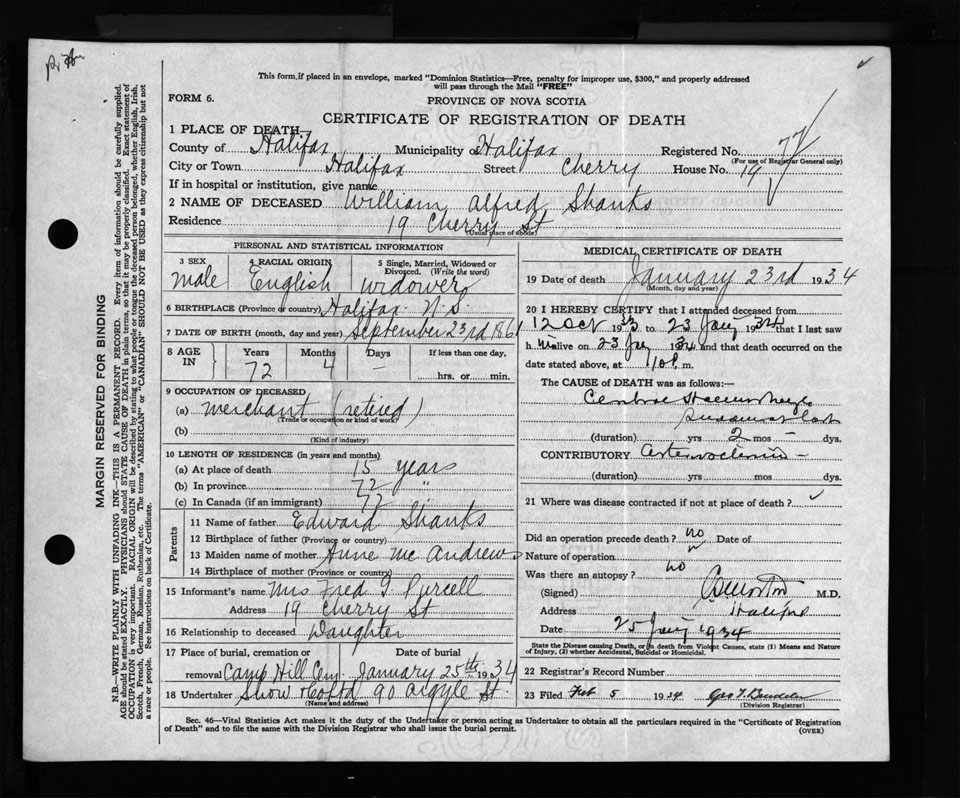 This form if placed in an envelope, marked "Dominion Statistics—Free, penalty for improper use, $300," and properly addressed
will pass through the Mail "FREE"
FORM 6.
PROVINCE OF NOVA SCOTIA
CERTIFICATE OF REGISTRATION OF DEATH
1 PLACE OF DEATH—
County of Halifax Municipality of Halifax Registered No. 77
(For use of Registrar General only)
City or Town Halifax Street Cherry House No. 19
If in hospital or institution, give name
2 NAME OF DECEASED William Alfred Shanks
Residence 19 Cherry St
(Usual place of abode)
PERSONAL AND STATISTICAL INFORMATION
3 SEX 4 RACIAL ORIGIN 5 Single, Married, Widowed or Divorced. (Write the word)
Male English widower
6 BIRTHPLACE (Province or country) Halifax N.S.
7 DATE OF BIRTH (month, day and year) September 23rd 1861
8 AGE IN Years Months Days If less than one day,
72 4 — hrs. or min.
9 OCCUPATION OF DECEASED
(a) Merchant (retired)
(Trade or occupation or kind of work)
(b)
(Kind of industry)
10 LENGTH OF RESIDENCE (in years and months)
(a) At place of death 15 years
(b) In province 72 "
(c) In Canada (if an immigrant) 72 "
Parents
11 Name of father Edward Shanks
12 Birthplace of father (Province or country)
13 Maiden name of mother Anne Mc Andrews
14 Birthplace of mother (Province or country)
15 Informant's name Mrs Fred G Purcell
Address 19 Cherry St
16 Relationship to deceased Daughter
17 Place of burial, cremation or removal Date of burial
Camp Hill Cem. January 25th 1934
18 Undertaker Snow & Co Ltd 90 Argyle St.
(Name and address)
MEDICAL CERTIFICATE OF DEATH
19 Date of death January 23rd 1934
(Month, day and year)
20 I HEREBY CERTIFY that I attended deceased from
12 Oct 1933 to 23 Jany 1934 that I last saw
h im alive on 23 Jany 1934 and that death occurred on the
date stated above, at m.
The CAUSE of DEATH was as follows:—
Haemorrhage
(duration) yrs 2 mos — dys.
CONTRIBUTORY —
(duration) yrs mos dys.
21 Where was disease contracted if not at place of death?
Did an operation precede death? no Date of
Nature of operation
Was there an autopsy? no
(Signed) M.D.
Address Halifax
Date 25 Jany 1934
State the Disease causing Death, or, in death from Violent Causes, state (1) Means and Nature
of Injury, (2) whether Accidental, Suicidal or Homicidal.
22 Registrar's Record Number
23 Filed Feb 5 1934
(Division Registrar)
Sec. 46—Vital Statistics Act makes it the duty of the Undertaker or person acting as Undertaker to obtain all the particulars required in the "Certificate of Registration
of Death" and to file the same with the Division Registrar who shall issue the burial permit.
(OVER)
MARGIN RESERVED FOR BINDING
N.B.—WRITE PLAINLY WITH UNFADING INK—THIS IS A PERMANENT RECORD. Every item of information should be carefully supplied.
AGE should be stated EXACTLY. PHYSICIANS should STATE CAUSE OF DEATH in plain terms, so that it may be properly classified. Exact statement of
OCCUPATION is very important. RACIAL ORIGIN will be described by stating to what people or tongue the deceased person belonged, whether English, Irish,
Scotch, French, German, Russian, Ruthenian, etc. The terms "AMERICAN" or "CANADIAN" SHOULD NOT BE USED as they express citizenship but not
a race or people. See instructions on back of Certificate.